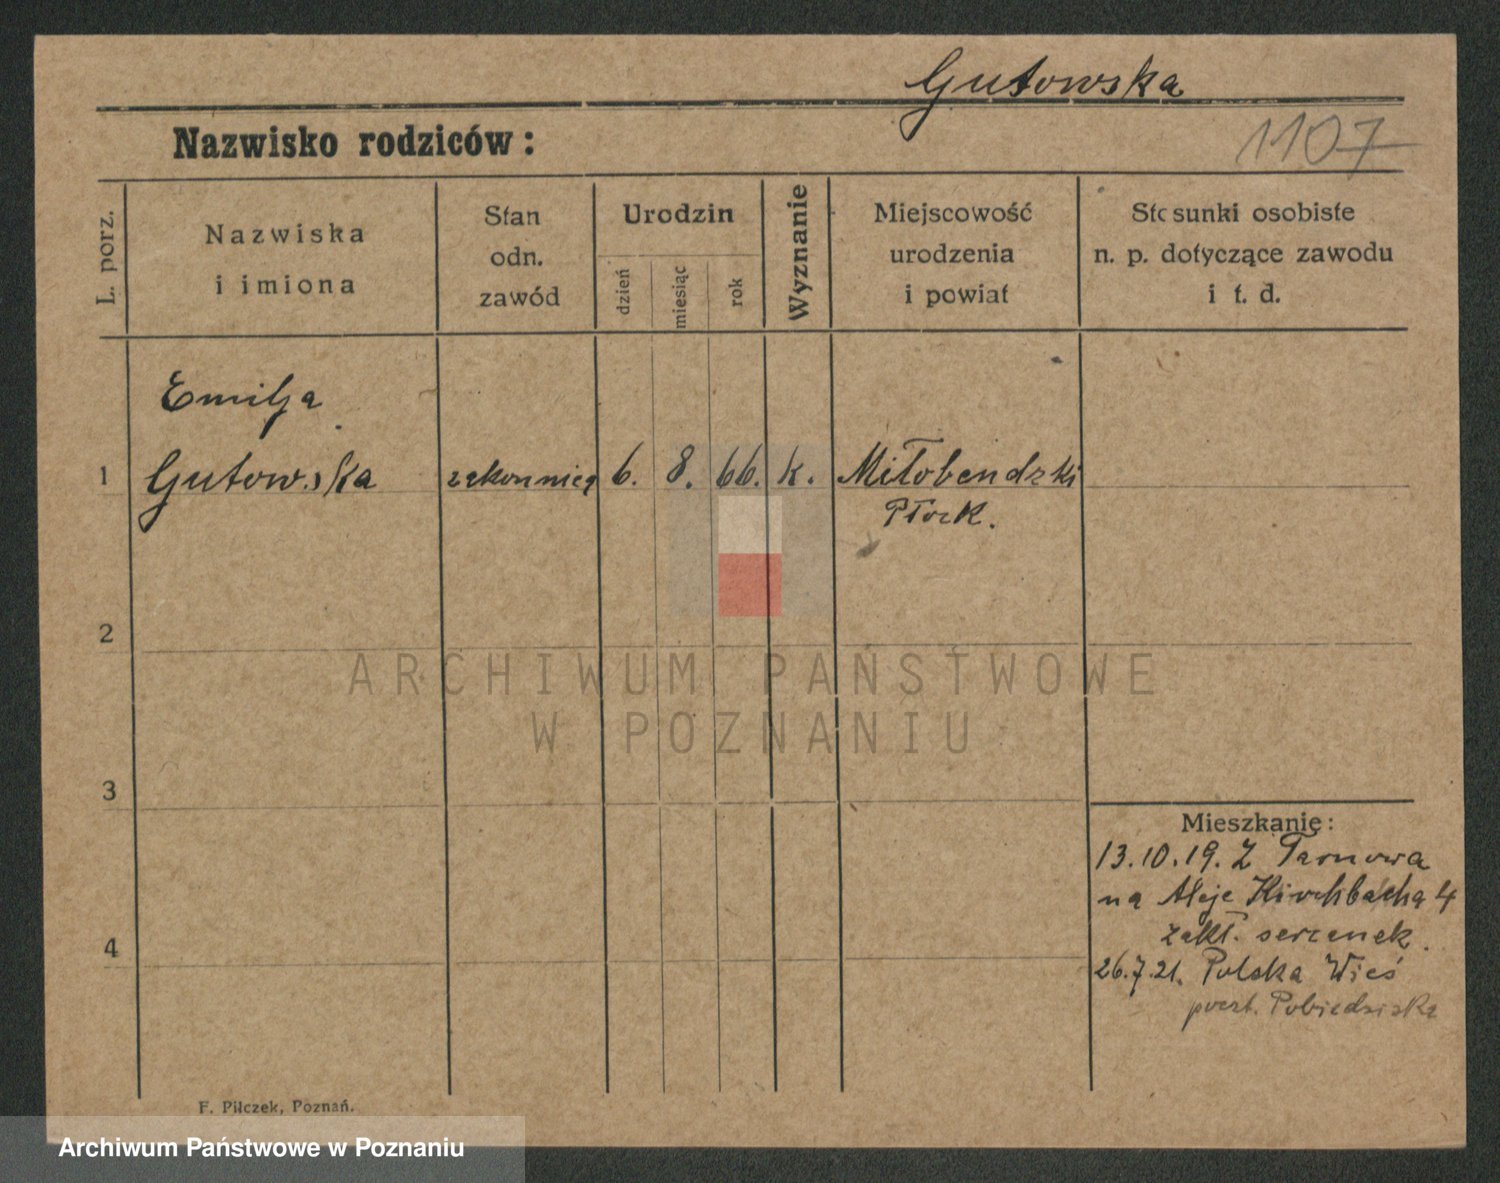 Gutowska
Nazwisko rodziców:
1107
L. porz.
Nazwiska
i imiona
Stan
odn.
zawód
Urodzin
dzień
miesiąc
rok
Wyznanie
Miejscowość
urodzenia
i powiat
Stosunki osobiste
n. p. dotyczące zawodu
i t. d.
Emilja
1 Gutowska zakonnica 6. 8. 66. k. Miłobendzki
Płock.
2
ARCHIWUM PAŃSTWOWE
W POZNANIU
3
Mieszkanie:
13.10.19. Z Tarnowa
na Aleje Kirchbacha 4
zakł. sercanek.
4
26.7.21. Polska Wieś
poczt. Pobiedziska
F. Pilczek, Poznań.
Archiwum Państwowe w Poznaniu